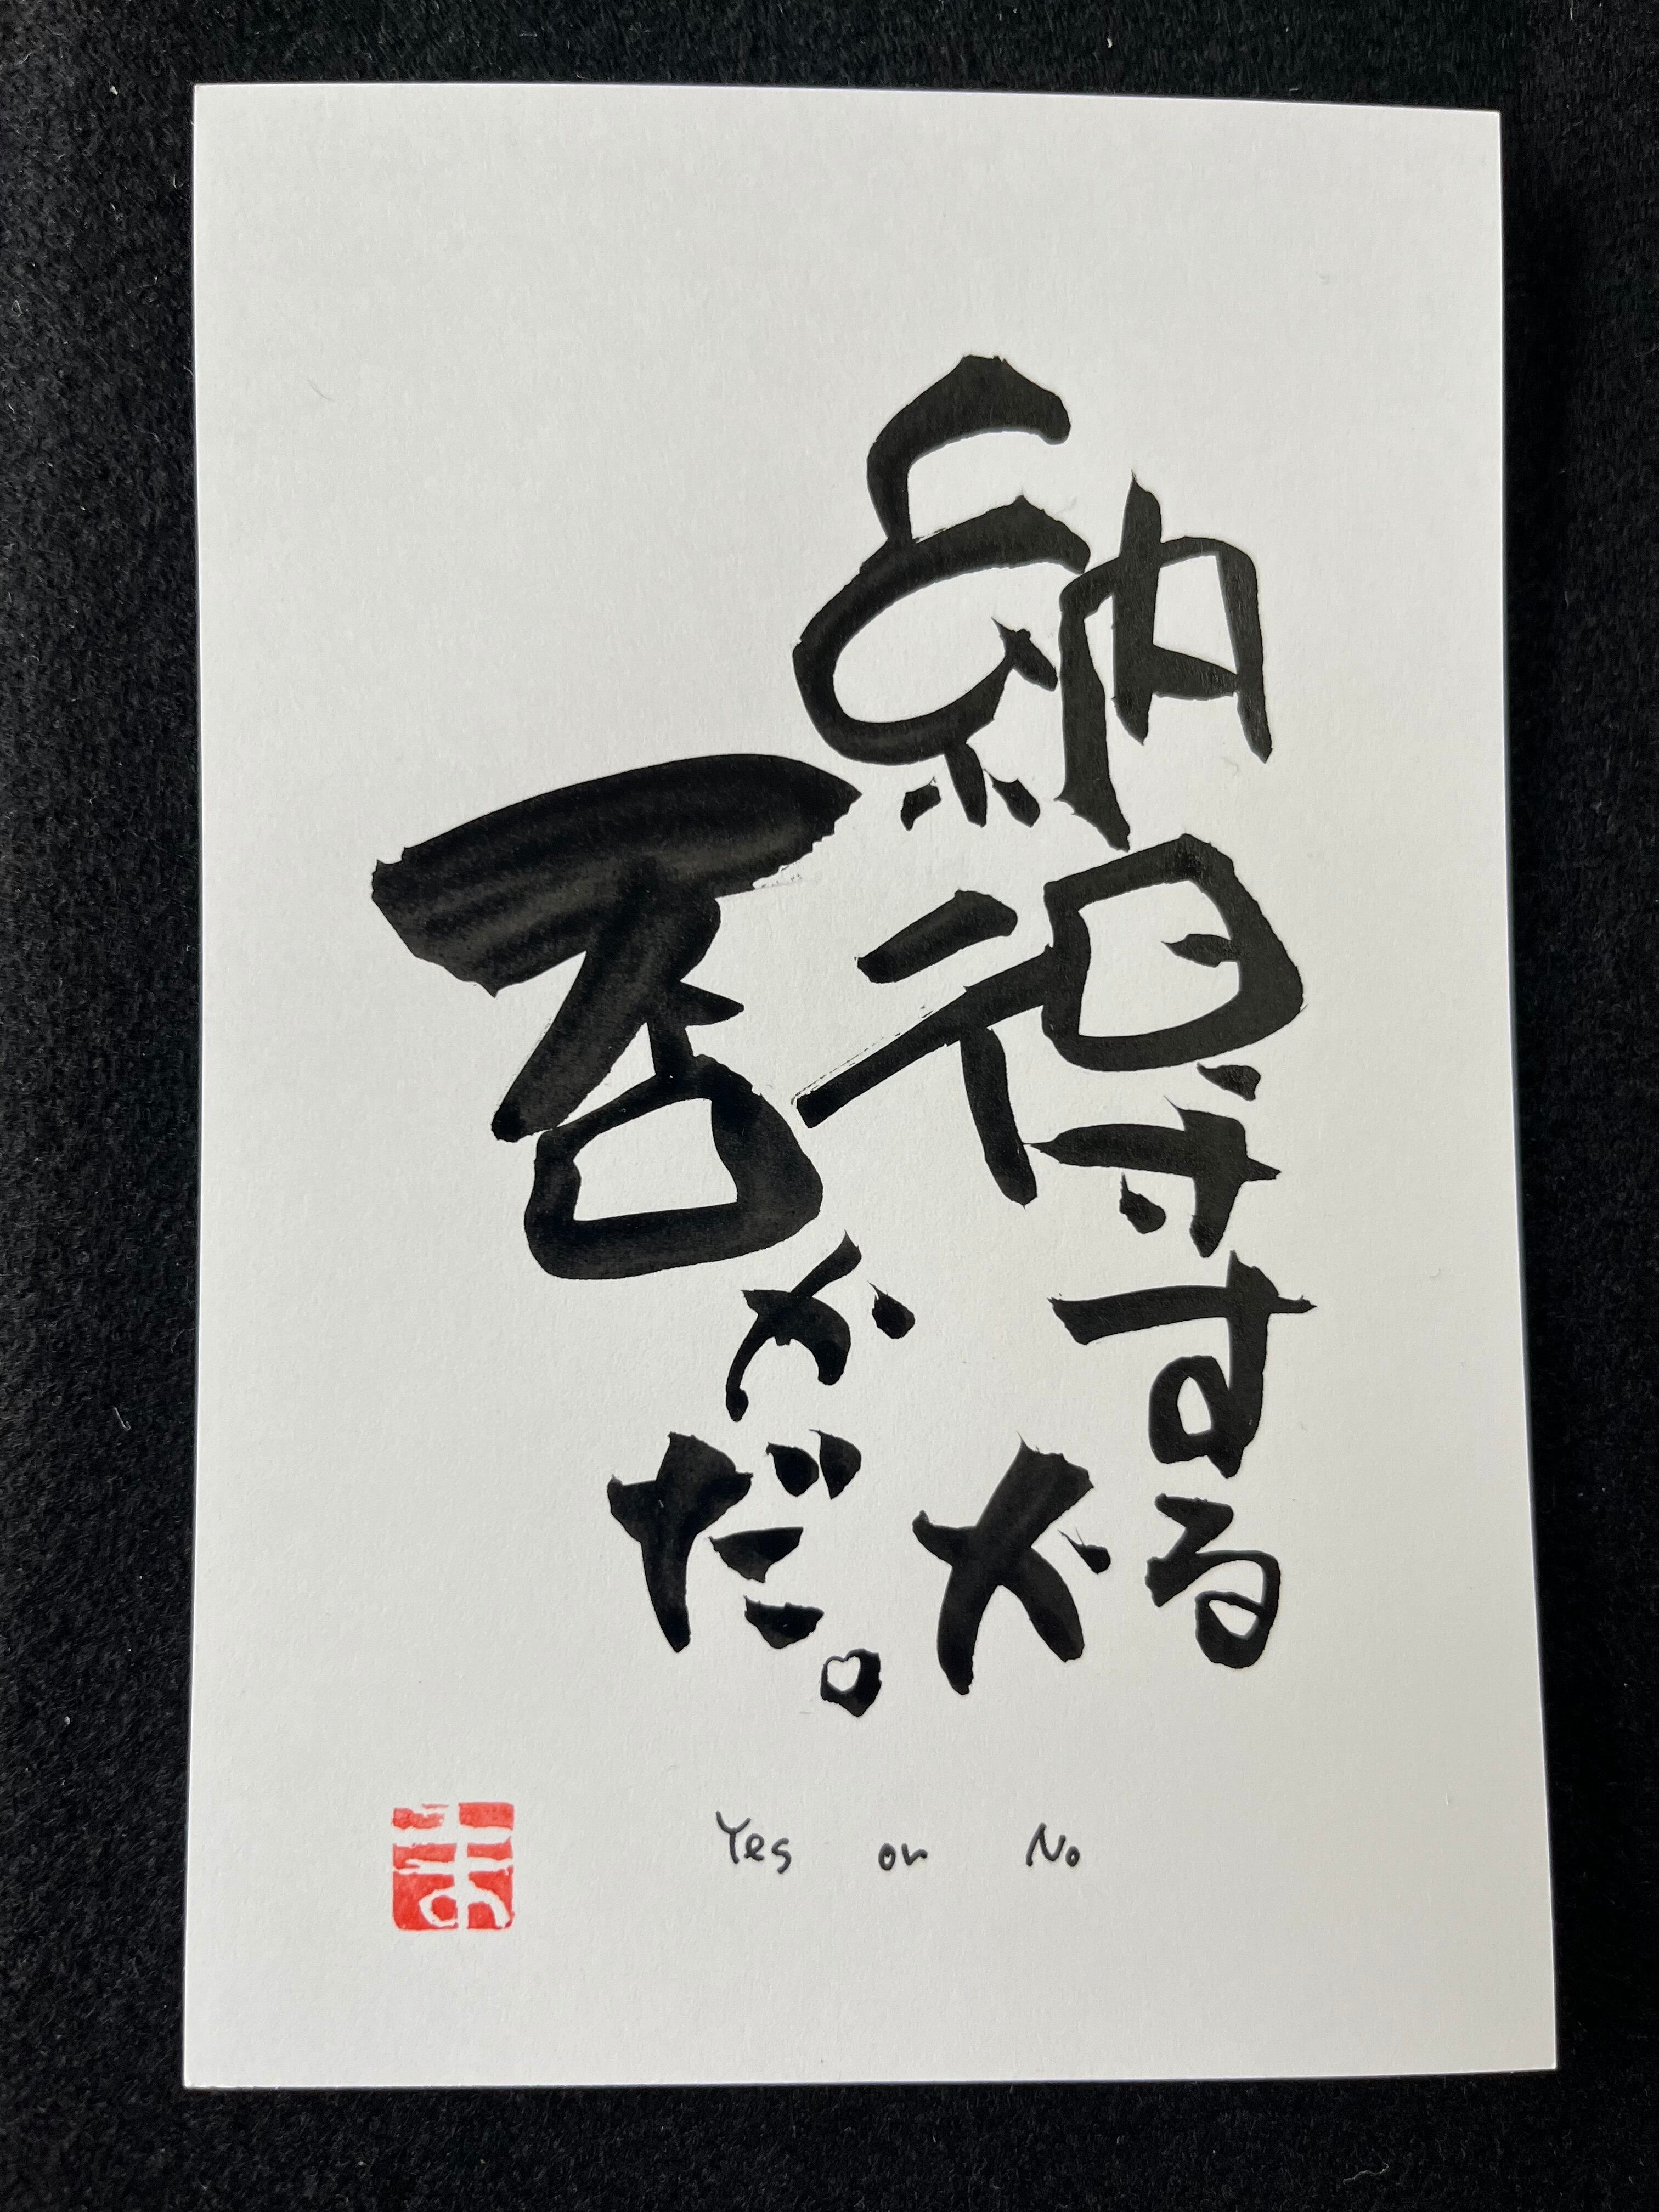 納得するか
否かだ。
Yes or No
ま